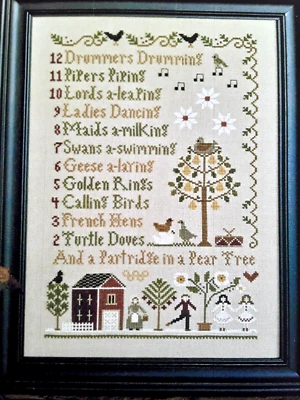 12 Drummers Drumming
11 Pipers Piping
10 Lords a-leaping
9 Ladies Dancing
8 Maids a-milking
7 Swans a-swimming
6 Geese a-laying
5 Golden Rings
4 Calling Birds
3 French Hens
2 Turtle Doves
And a Partridge in a Pear Tree